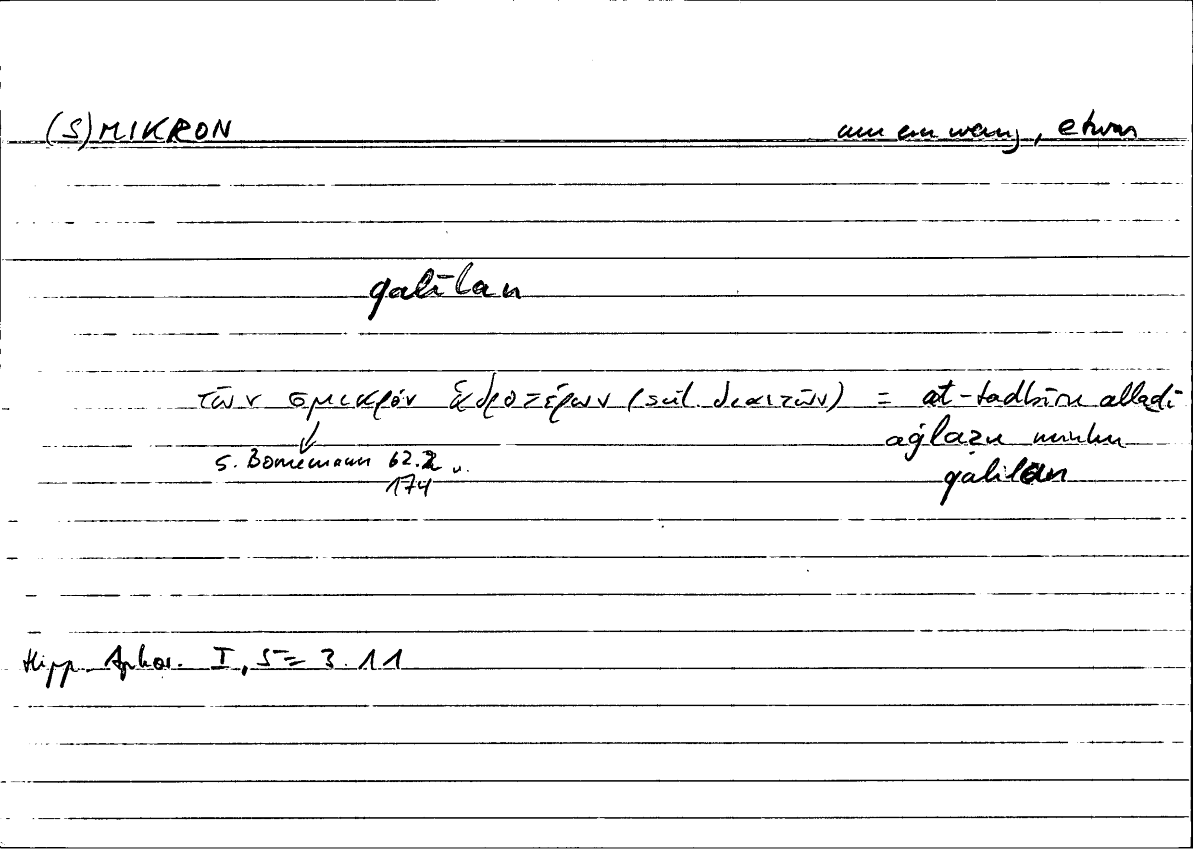 (S)MIKRON um ein wenig, etwas
qalīlan
τῶν σμικρὸν ἁδροτέρων (scil. διαιτῶν) = at-tadbīru alladī
s. Bornemann 62.2 u. aġlaẓu minhu
174 qalilan
Hipp. Aphor. I, 5 = 3.11